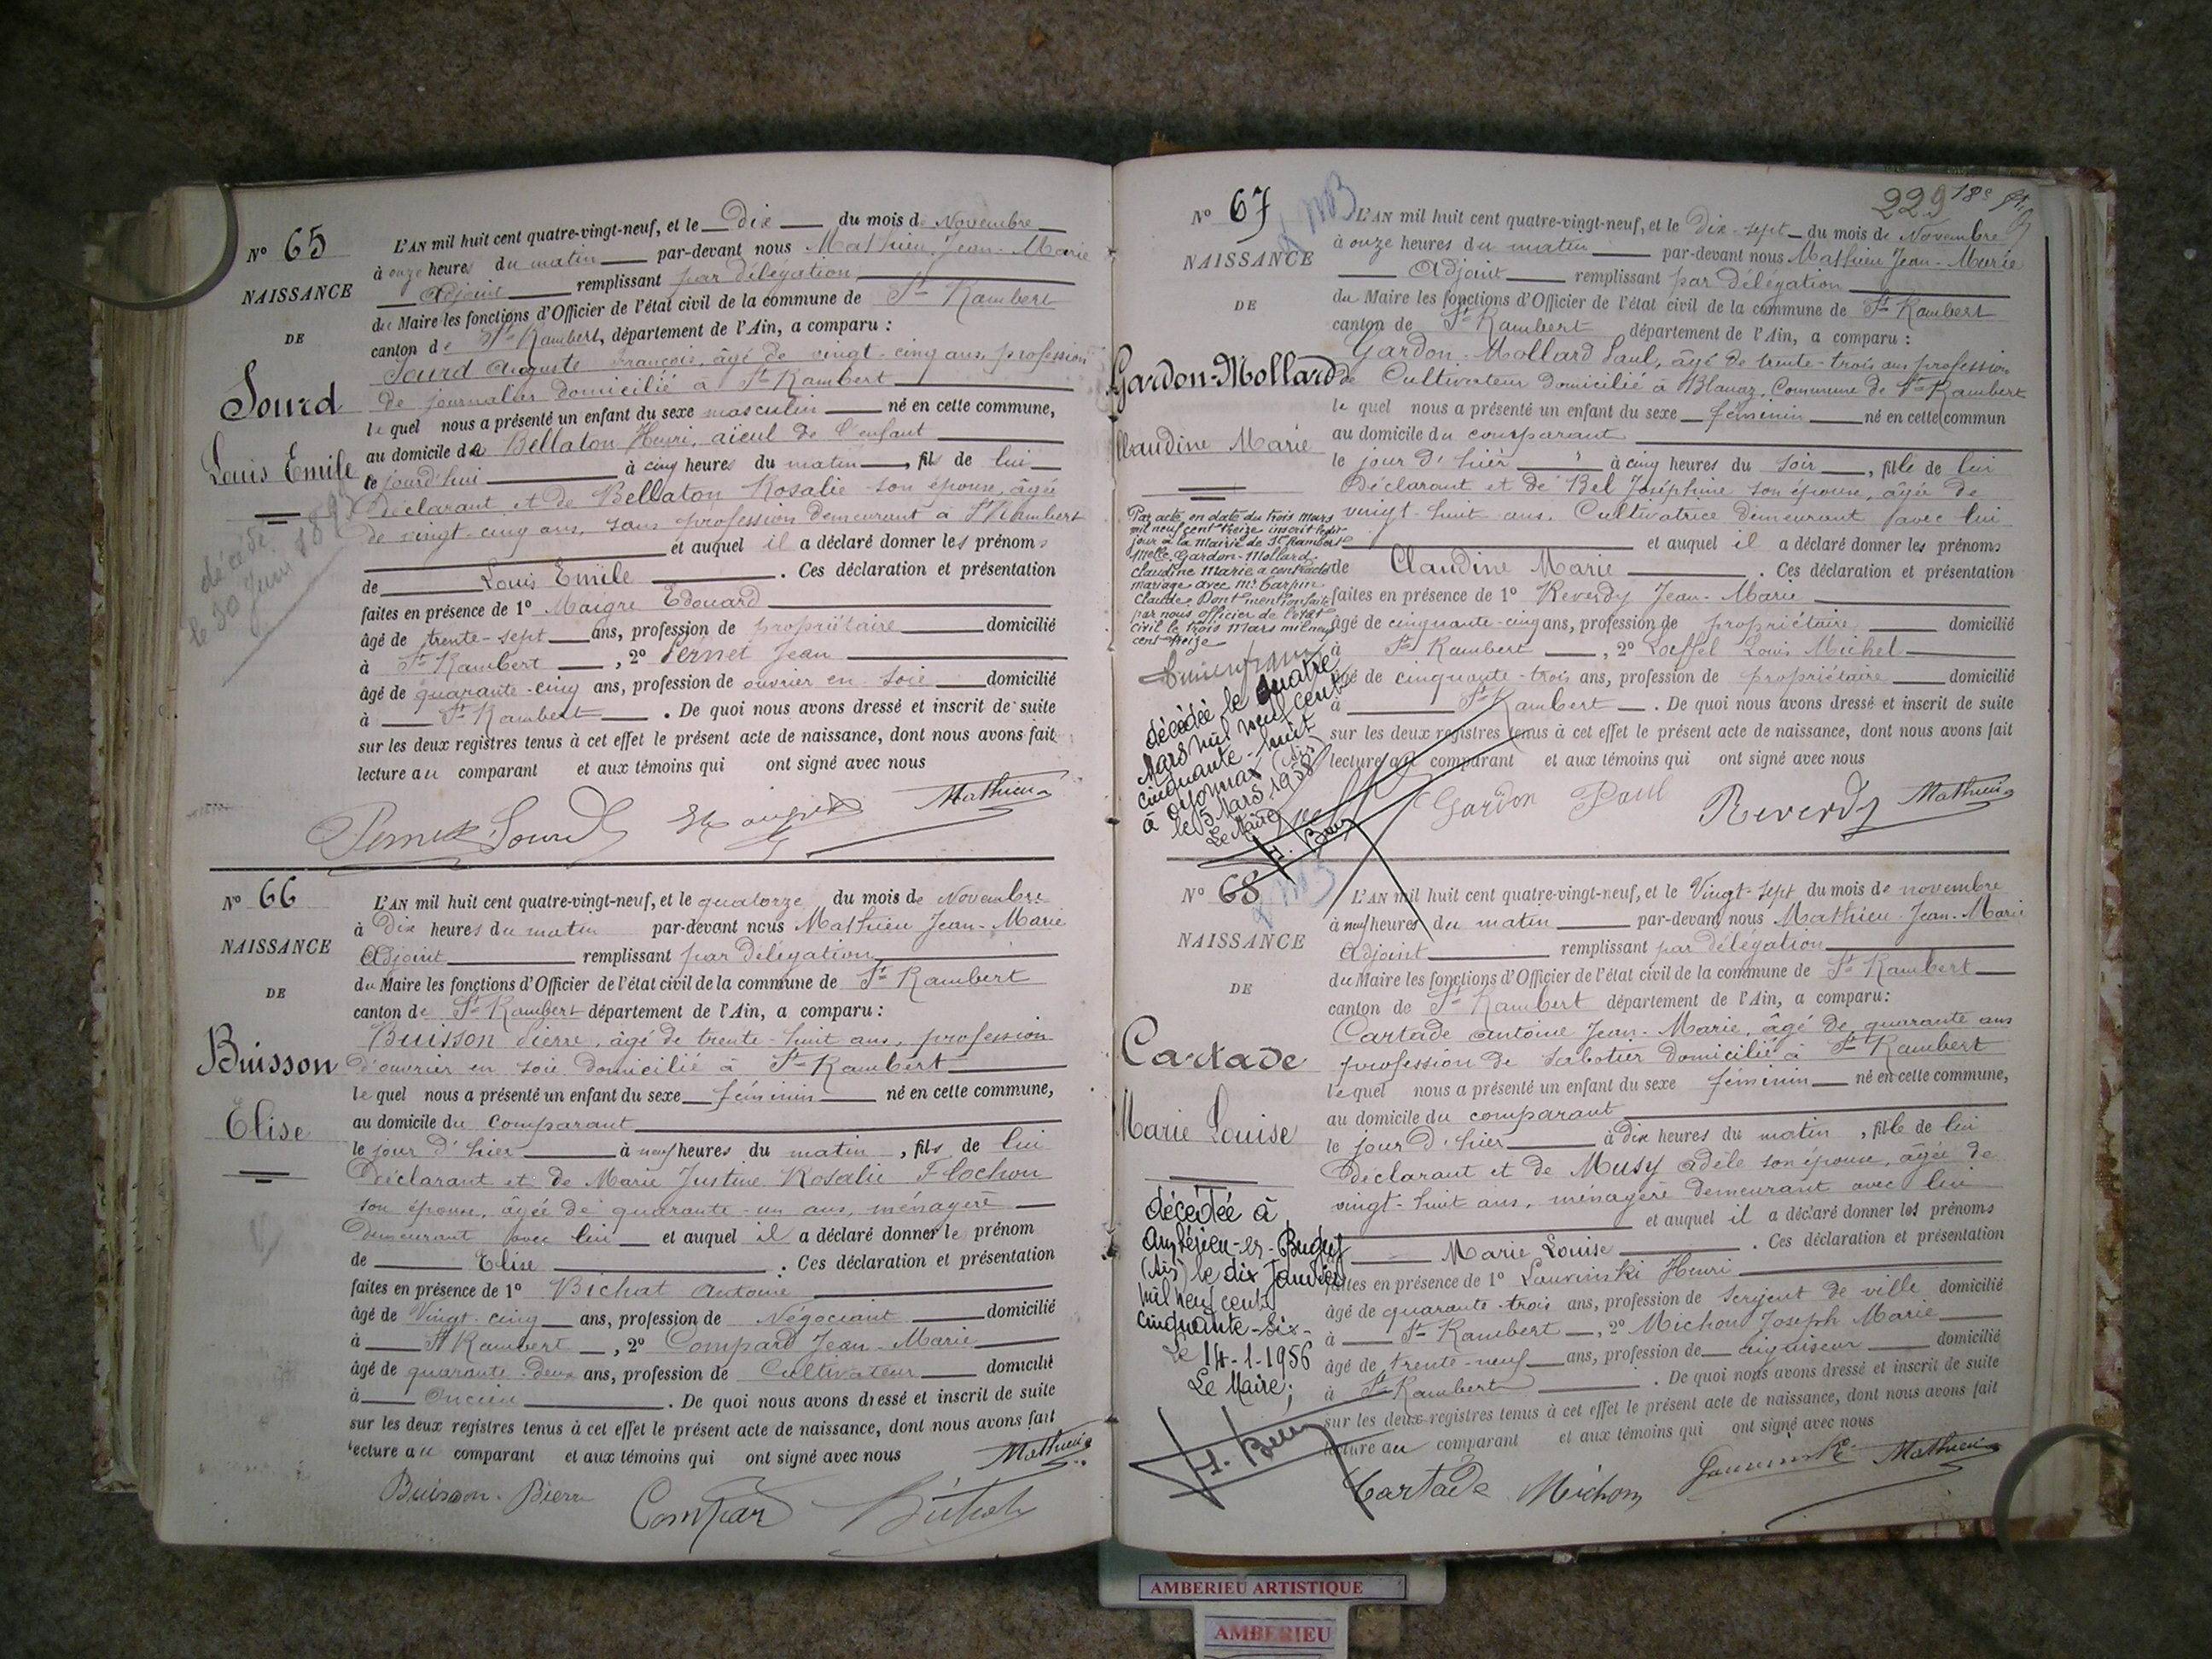 N° 65
NAISSANCE
DE
Sourd
Louis Emile
décédé
le 30 Juin
L'AN mil huit cent quatre-vingt-neuf, et le Dix du mois de Novembre
à onze heures du matin par-devant nous Mathieu Jean-Marie
Adjoint remplissant par délégation
du Maire les fonctions d'Officier de l'état civil de la commune de St Rambert
canton de St Rambert, département de l'Ain, a comparu :
Sourd Auguste François, âgé de vingt-cinq ans, profession
de journalier domicilié à St Rambert
lequel nous a présenté un enfant du sexe masculin né en cette commune,
au domicile de Bellaton Henri, aieul de l'enfant
ce jourd'hui à cinq heures du matin, fils de lui
déclarant et de Bellaton Rosalie son épouse, âgée
de vingt-cinq ans, sans profession demeurant à St Rambert
et auquel il a déclaré donner les prénoms
de Louis Emile. Ces déclaration et présentation
faites en présence de 1° Maigre Edouard
âgé de trente-sept ans, profession de propriétaire domicilié
à St Rambert, 2° Pernet Jean
âgé de quarante-cinq ans, profession de ouvrier en soie domicilié
à St Rambert. De quoi nous avons dressé et inscrit de suite
sur les deux registres tenus à cet effet le présent acte de naissance, dont nous avons fait
lecture au comparant et aux témoins qui ont signé avec nous
Pernet Sourd Mathieu
N° 66
NAISSANCE
DE
Buisson
Elise
L'AN mil huit cent quatre-vingt-neuf, et le quatorze du mois de Novembre
à Dix heures du matin par-devant nous Mathieu Jean-Marie
Adjoint remplissant par délégation
du Maire les fonctions d'Officier de l'état civil de la commune de St Rambert
canton de St Rambert département de l'Ain, a comparu :
Buisson Pierre, âgé de trente-huit ans, profession
d'ouvrier en soie domicilié à St Rambert
lequel nous a présenté un enfant du sexe féminin né en cette commune,
au domicile du comparant
le jour d'hier à neuf heures du matin, fils de lui
Déclarant et de Marie Justine Rosalie Flochon
son épouse, âgée de quarante-un ans, ménagère
Demeurant avec lui et auquel il a déclaré donner le prénom
de Elise. Ces déclaration et présentation
faites en présence de 1° Bichat Antoine
âgé de Vingt-cinq ans, profession de Négociant domicilié
à St Rambert, 2° Compard Jean-Marie
âgé de quarante-deux ans, profession de Cultivateur domicilié
à Oncieu. De quoi nous avons dressé et inscrit de suite
sur les deux registres tenus à cet effet le présent acte de naissance, dont nous avons fait
lecture au comparant et aux témoins qui ont signé avec nous
Mathieu
Buisson-Pierre Compard Bichat
229 18e
N° 67
NAISSANCE
DE
Gardon-Mollard
Claudine Marie
Par acte en date du trois Mars
mil neuf cent treize inscrit le dit
jour à la Mairie de St Rambert
Melle Gardon-Mollard
Claudine Marie a contracté
mariage avec Mr Carpin
Claude. Dont mention faite
par nous officier de l'état
civil le trois Mars mil neuf
cent treize
décédée le quatre
Mars mil neuf cent
cinquante-huit
à Oyonnax (Ain)
le 5 Mars 1958
Le Maire
L'AN mil huit cent quatre-vingt-neuf, et le Dix-sept du mois de Novembre
à onze heures du matin par-devant nous Mathieu Jean-Marie
Adjoint remplissant par délégation
du Maire les fonctions d'Officier de l'état civil de la commune de St Rambert
canton de St Rambert département de l'Ain, a comparu :
Gardon-Mollard Paul, âgé de trente-trois ans profession
de Cultivateur domicilié à Blanaz, Commune de St Rambert
lequel nous a présenté un enfant du sexe féminin né en cette commun
au domicile du comparant
le jour d'hier à cinq heures du soir, fille de lui
Déclarant et de Bel Joséphine son épouse, âgée de
vingt-huit ans, Cultivatrice demeurant avec lui
et auquel il a déclaré donner les prénoms
de Claudine Marie. Ces déclaration et présentation
faites en présence de 1° Reverdy Jean-Marie
âgé de cinquante-cinq ans, profession de propriétaire domicilié
à St Rambert, 2° Loeffel Louis Michel
âgé de cinquante-trois ans, profession de propriétaire domicilié
à St Rambert. De quoi nous avons dressé et inscrit de suite
sur les deux registres tenus à cet effet le présent acte de naissance, dont nous avons fait
lecture au comparant et aux témoins qui ont signé avec nous
Gardon Paul Reverdy Mathieu
N° 68
NAISSANCE
DE
Cartade
Marie Louise
décédée à
Ambérieu-en-Bugey
(Ain) le dix Janvier
mil neuf cent
cinquante-six-
Le 14-1-1956
Le Maire;
L'AN mil huit cent quatre-vingt-neuf, et le Vingt-sept du mois de novembre
à neuf heures du matin par-devant nous Mathieu Jean-Marie
Adjoint remplissant par délégation
du Maire les fonctions d'Officier de l'état civil de la commune de St Rambert
canton de St Rambert département de l'Ain, a comparu:
Cartade Antoine Jean-Marie, âgé de quarante ans
profession de Sabotier domicilié à St Rambert
lequel nous a présenté un enfant du sexe féminin né en cette commune,
au domicile du comparant
le jour d'hier à dix heures du matin, fille de lui
Déclarant et de Musy Adèle son épouse, âgée de
vingt-huit ans, ménagère demeurant avec lui
et auquel il a déclaré donner les prénoms
Marie Louise. Ces déclaration et présentation
faites en présence de 1° Henri
âgé de quarante-trois ans, profession de sergent de ville domicilié
à St Rambert, 2° Michon Joseph Marie
âgé de trente-neuf ans, profession de aiguiseur domicilié
à St Rambert. De quoi nous avons dressé et inscrit de suite
sur les deux registres tenus à cet effet le présent acte de naissance, dont nous avons fait
lecture au comparant et aux témoins qui ont signé avec nous
Cartade Michon Mathieu
AMBERIEU ARTISTIQUE
AMBERIEU